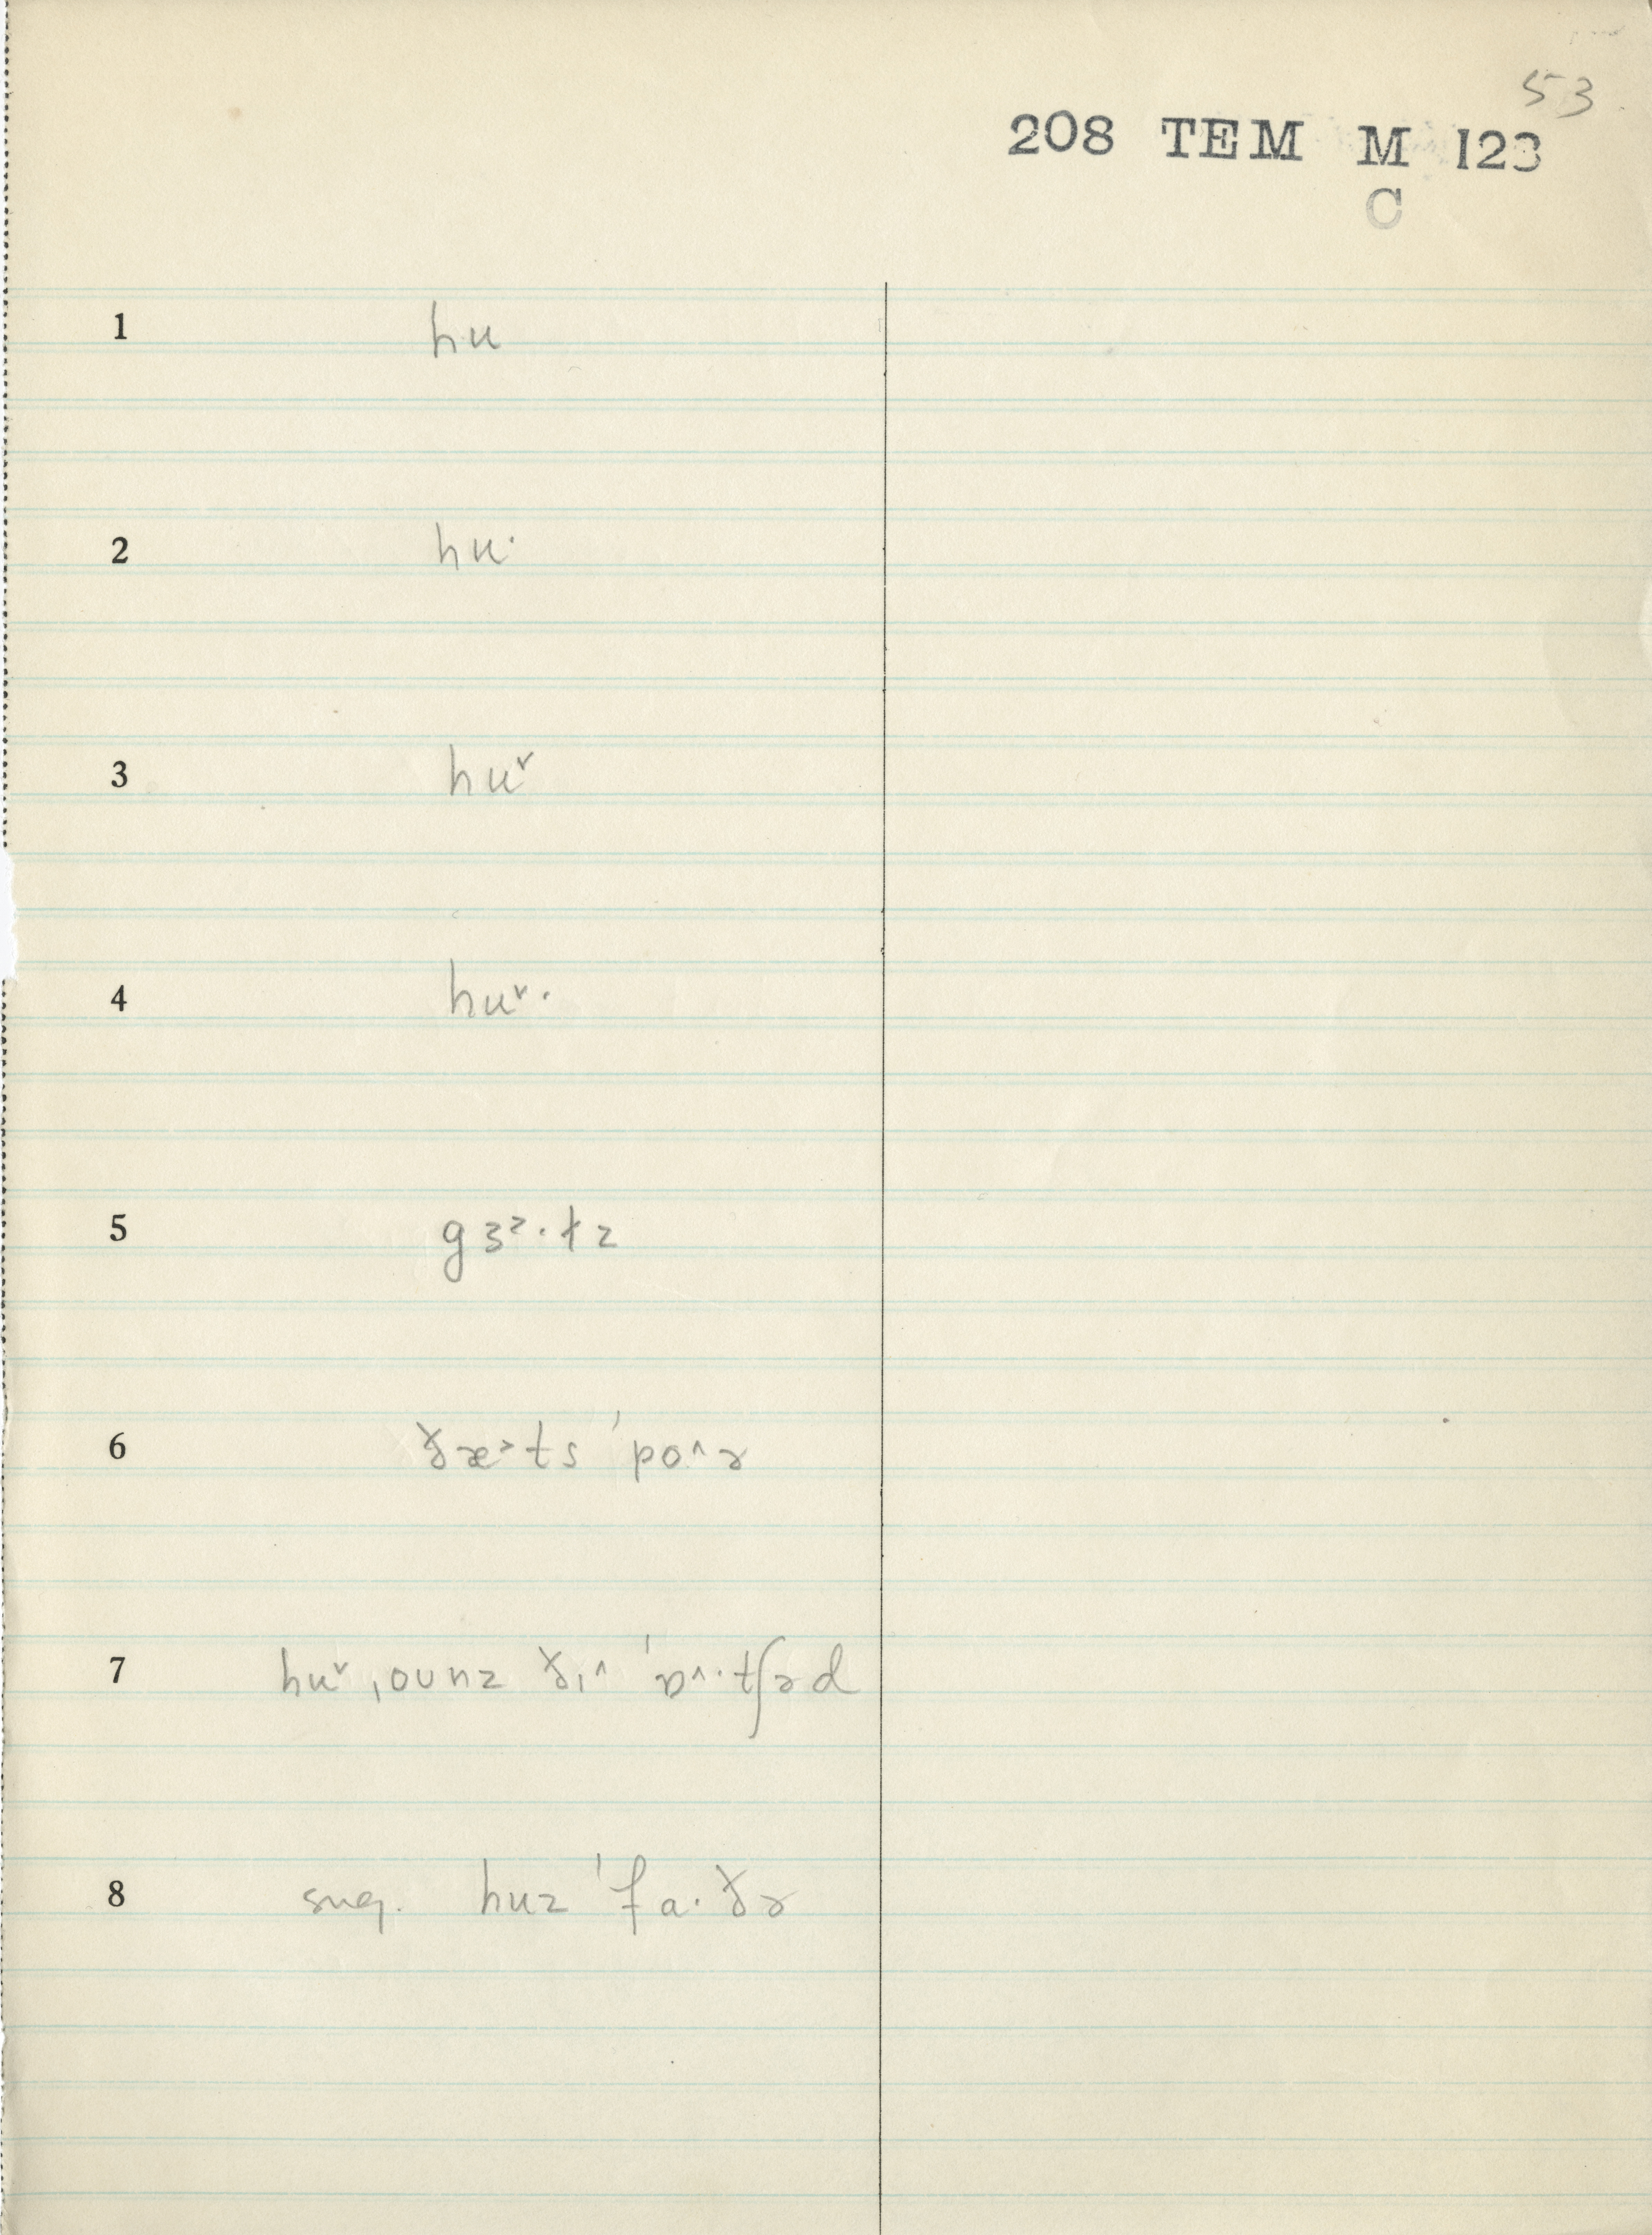 53
208 TEM M 123
C
1 hu
2 hu·
3 hu˅
4 hu˅·
5 gɜ˃·ɫz
6 ðæ˃ts ˈpo˄ɚ
7 hu˅ ˌoʊnz ðɪ˄ ˈɒ˄·tʃəd
8 sug. huz ˈfa·ðɚ